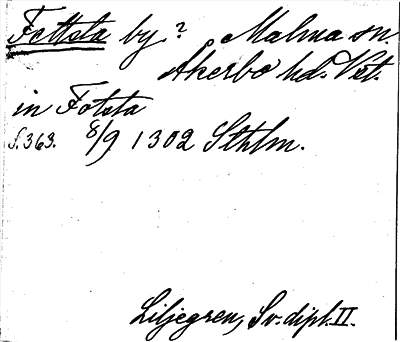 Fettsta by? Malma sn.
Åkerbo hd. Vstl.
in Fotsta
S. 363. 8/9 1302 Sthlm.
Liljegren, Sv. dipl. II.